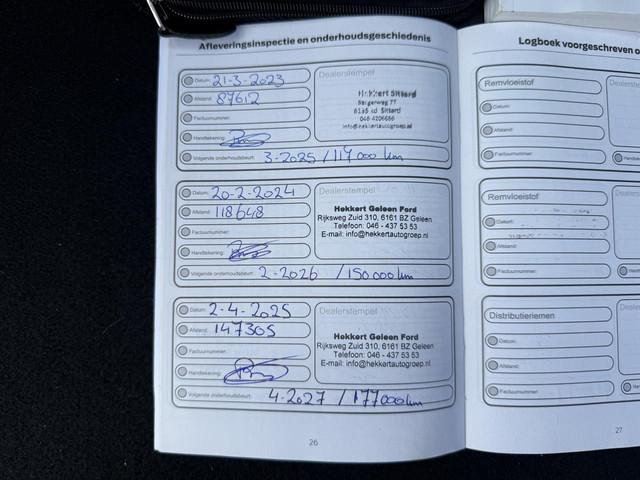 Afleveringsinspectie en onderhoudsgeschiedenis
Datum: 21-3-2023
Afstand: 87612
Factuurnummer:
Handtekening:
Volgende onderhoudsbeurt: 3-2025 / 117000 km
Dealerstempel
Hekkert Sittard
Bergerweg 77
Sittard
046 4206666
info@hekkertautogroep.nl
Datum: 20-2-2024
Afstand: 118648
Factuurnummer:
Handtekening:
Volgende onderhoudsbeurt: 2-2026 / 150000 km
Dealerstempel
Hekkert Geleen Ford
Rijksweg Zuid 310, 6161 BZ Geleen
Telefoon: 046 - 437 53 53
E-mail: info@hekkertautogroep.nl
Datum: 2-4-2025
Afstand: 147305
Factuurnummer:
Handtekening:
Volgende onderhoudsbeurt: 4-2027 / 177000 km
Dealerstempel
Hekkert Geleen Ford
Rijksweg Zuid 310, 6161 BZ Geleen
Telefoon: 046 - 437 53 53
E-mail: info@hekkertautogroep.nl
26
Logboek voorgeschreven o
Remvloeistof
Datum:
Afstand:
Factuurnummer:
Remvloeistof
Datum:
Afstand:
Factuurnummer:
Distributieriemen
Datum:
Afstand:
Factuurnummer:
27